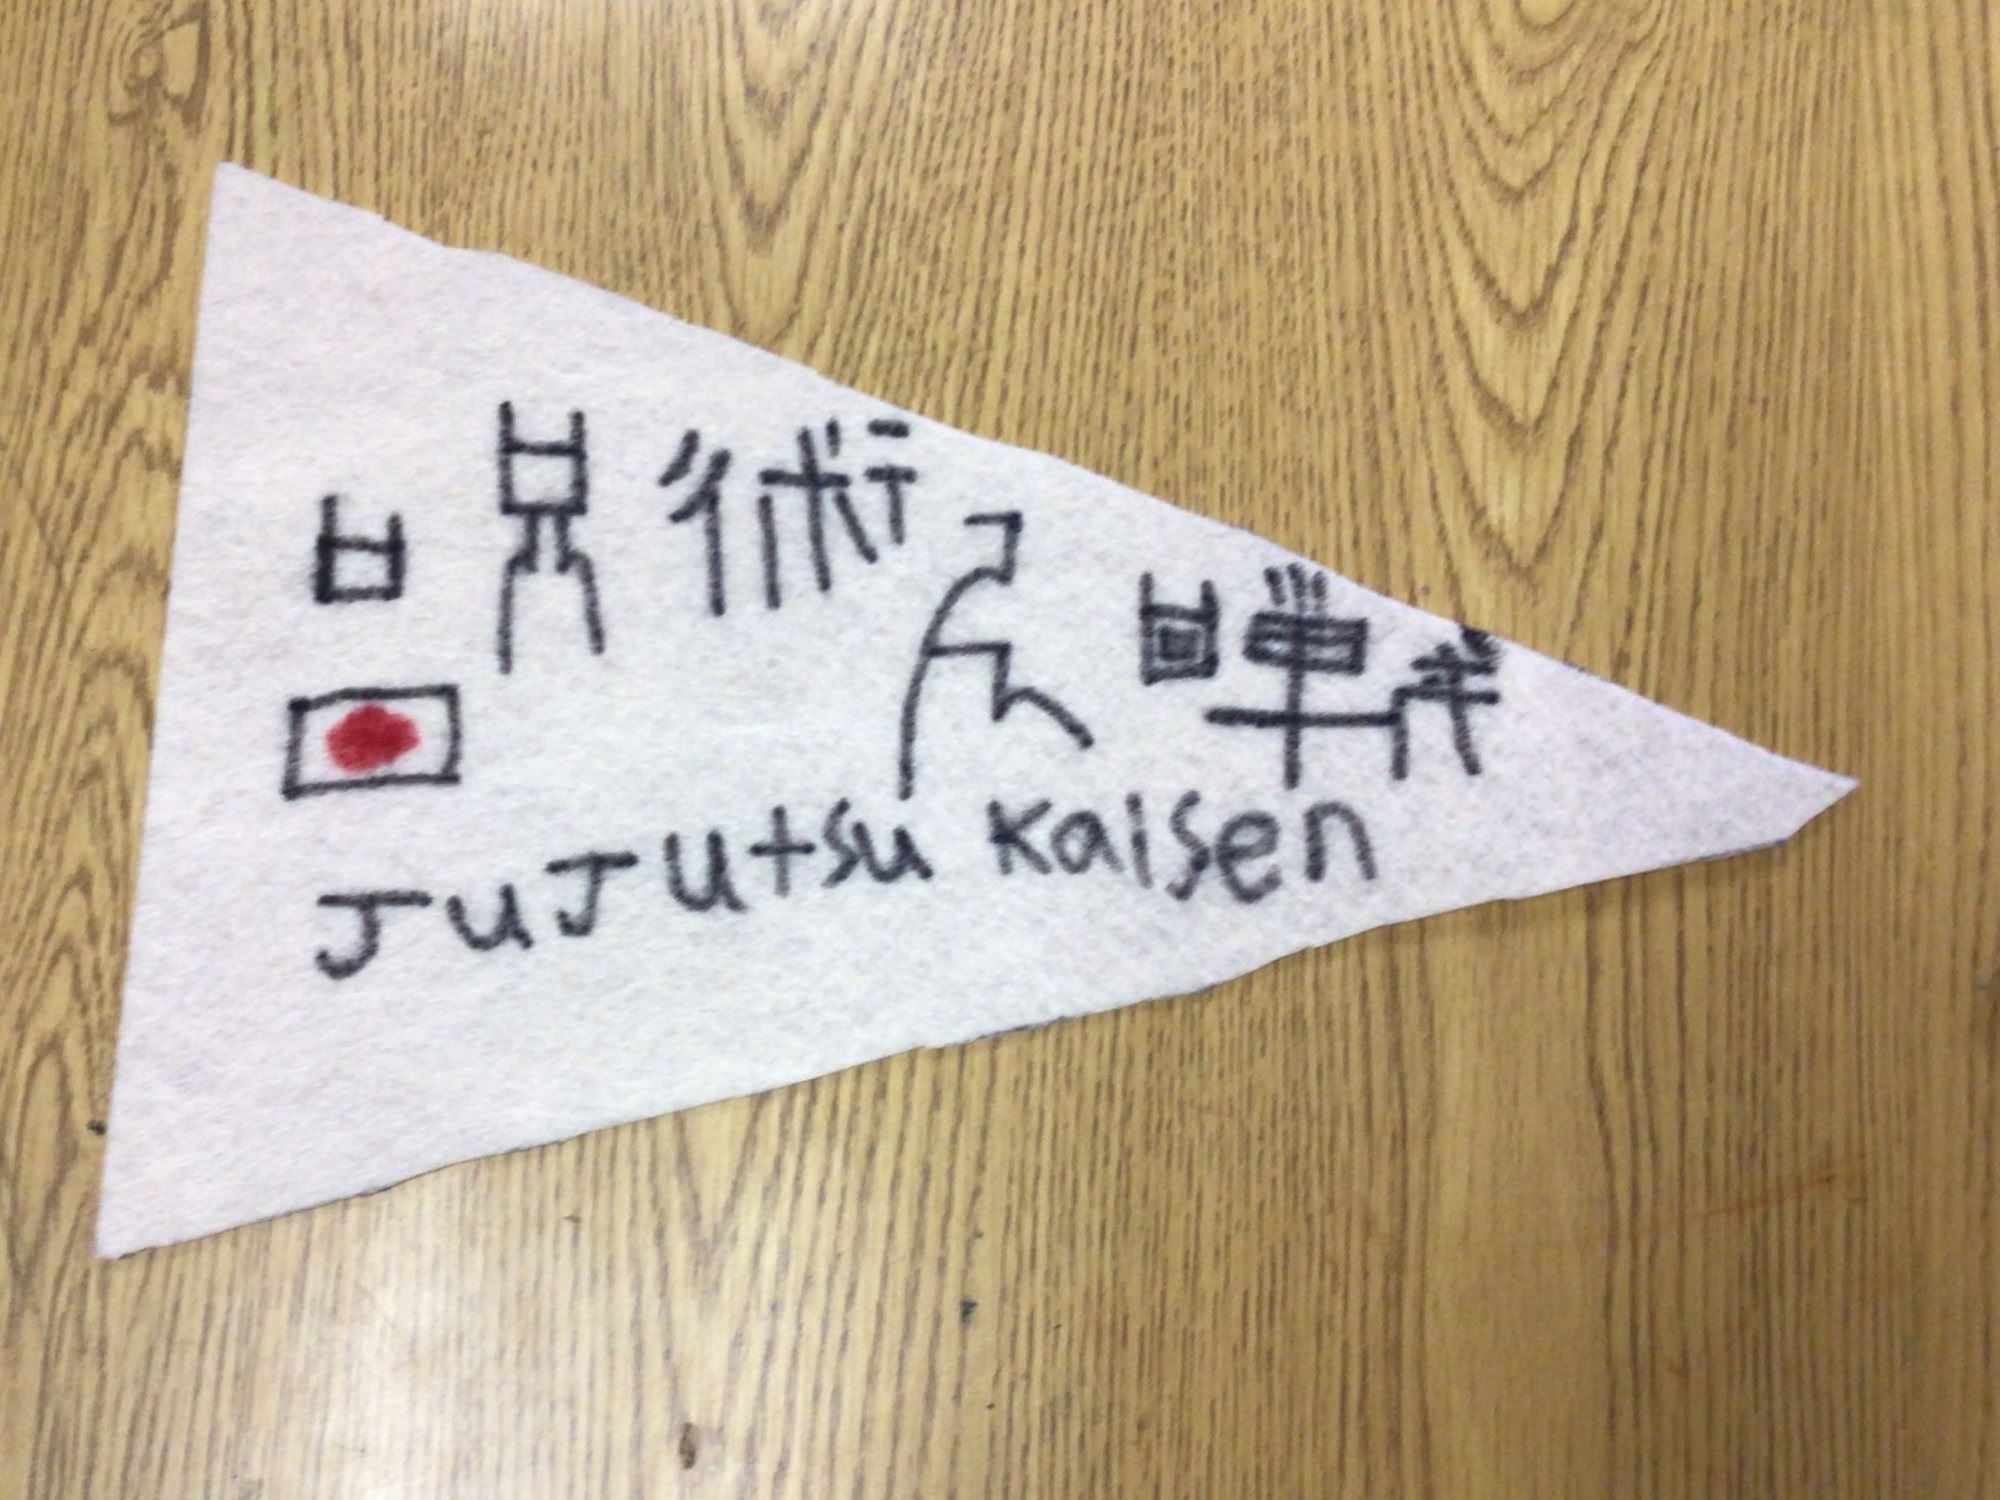 呪術廻戦
Jujutsu Kaisen